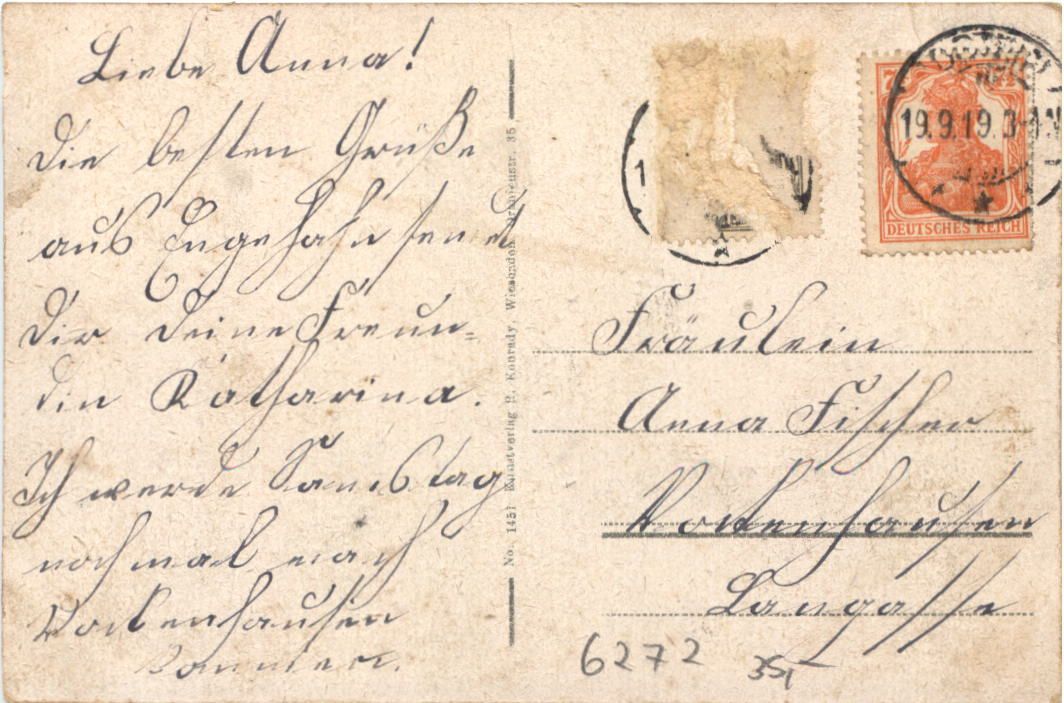 Liebe Anna!
Die besten Grüße
aus Engehahn sendet
Dir Deine Freun-
din Katharina.
Ich werde Samstag
nochmal nach
Vockenhausen
kommen.
No. 1451 Kunstverlag R. Konrady, Wiesbaden 35
19.9.19.
DEUTSCHES REICH
Fräulein
Anna Fischer
Vockenhausen
Langasse
6272